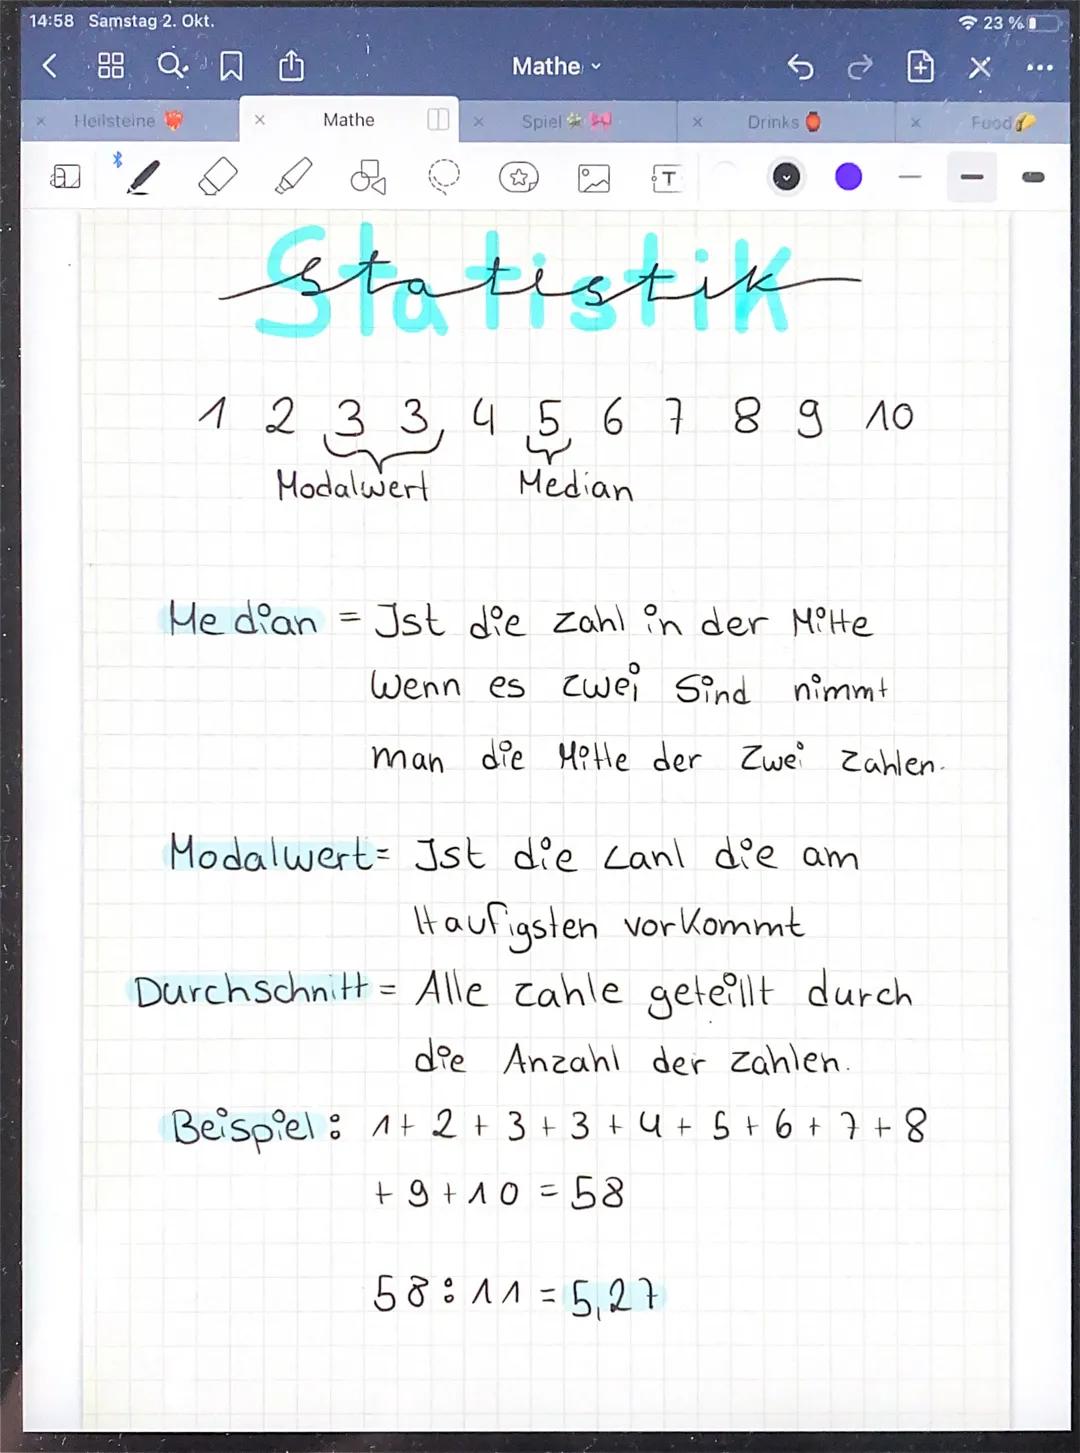 14:58 Samstag 2. Okt. 23 %
Mathe
Heilsteine Mathe Spiel Drinks Food
T
Statistik
1 2 3 3 4 5 6 7 8 9 10
Modalwert Median
Median = Ist die Zahl in der Mitte
Wenn es zwei Sind nimmt
man die Mitte der Zwei Zahlen.
Modalwert = Ist die Zahl die am
Haufigsten vorkommt
Durchschnitt = Alle zahle geteillt durch
die Anzahl der zahlen.
Beispiel: 1 + 2 + 3 + 3 + 4 + 5 + 6 + 7 + 8
+ 9 + 10 = 58
58 : 11 = 5,27